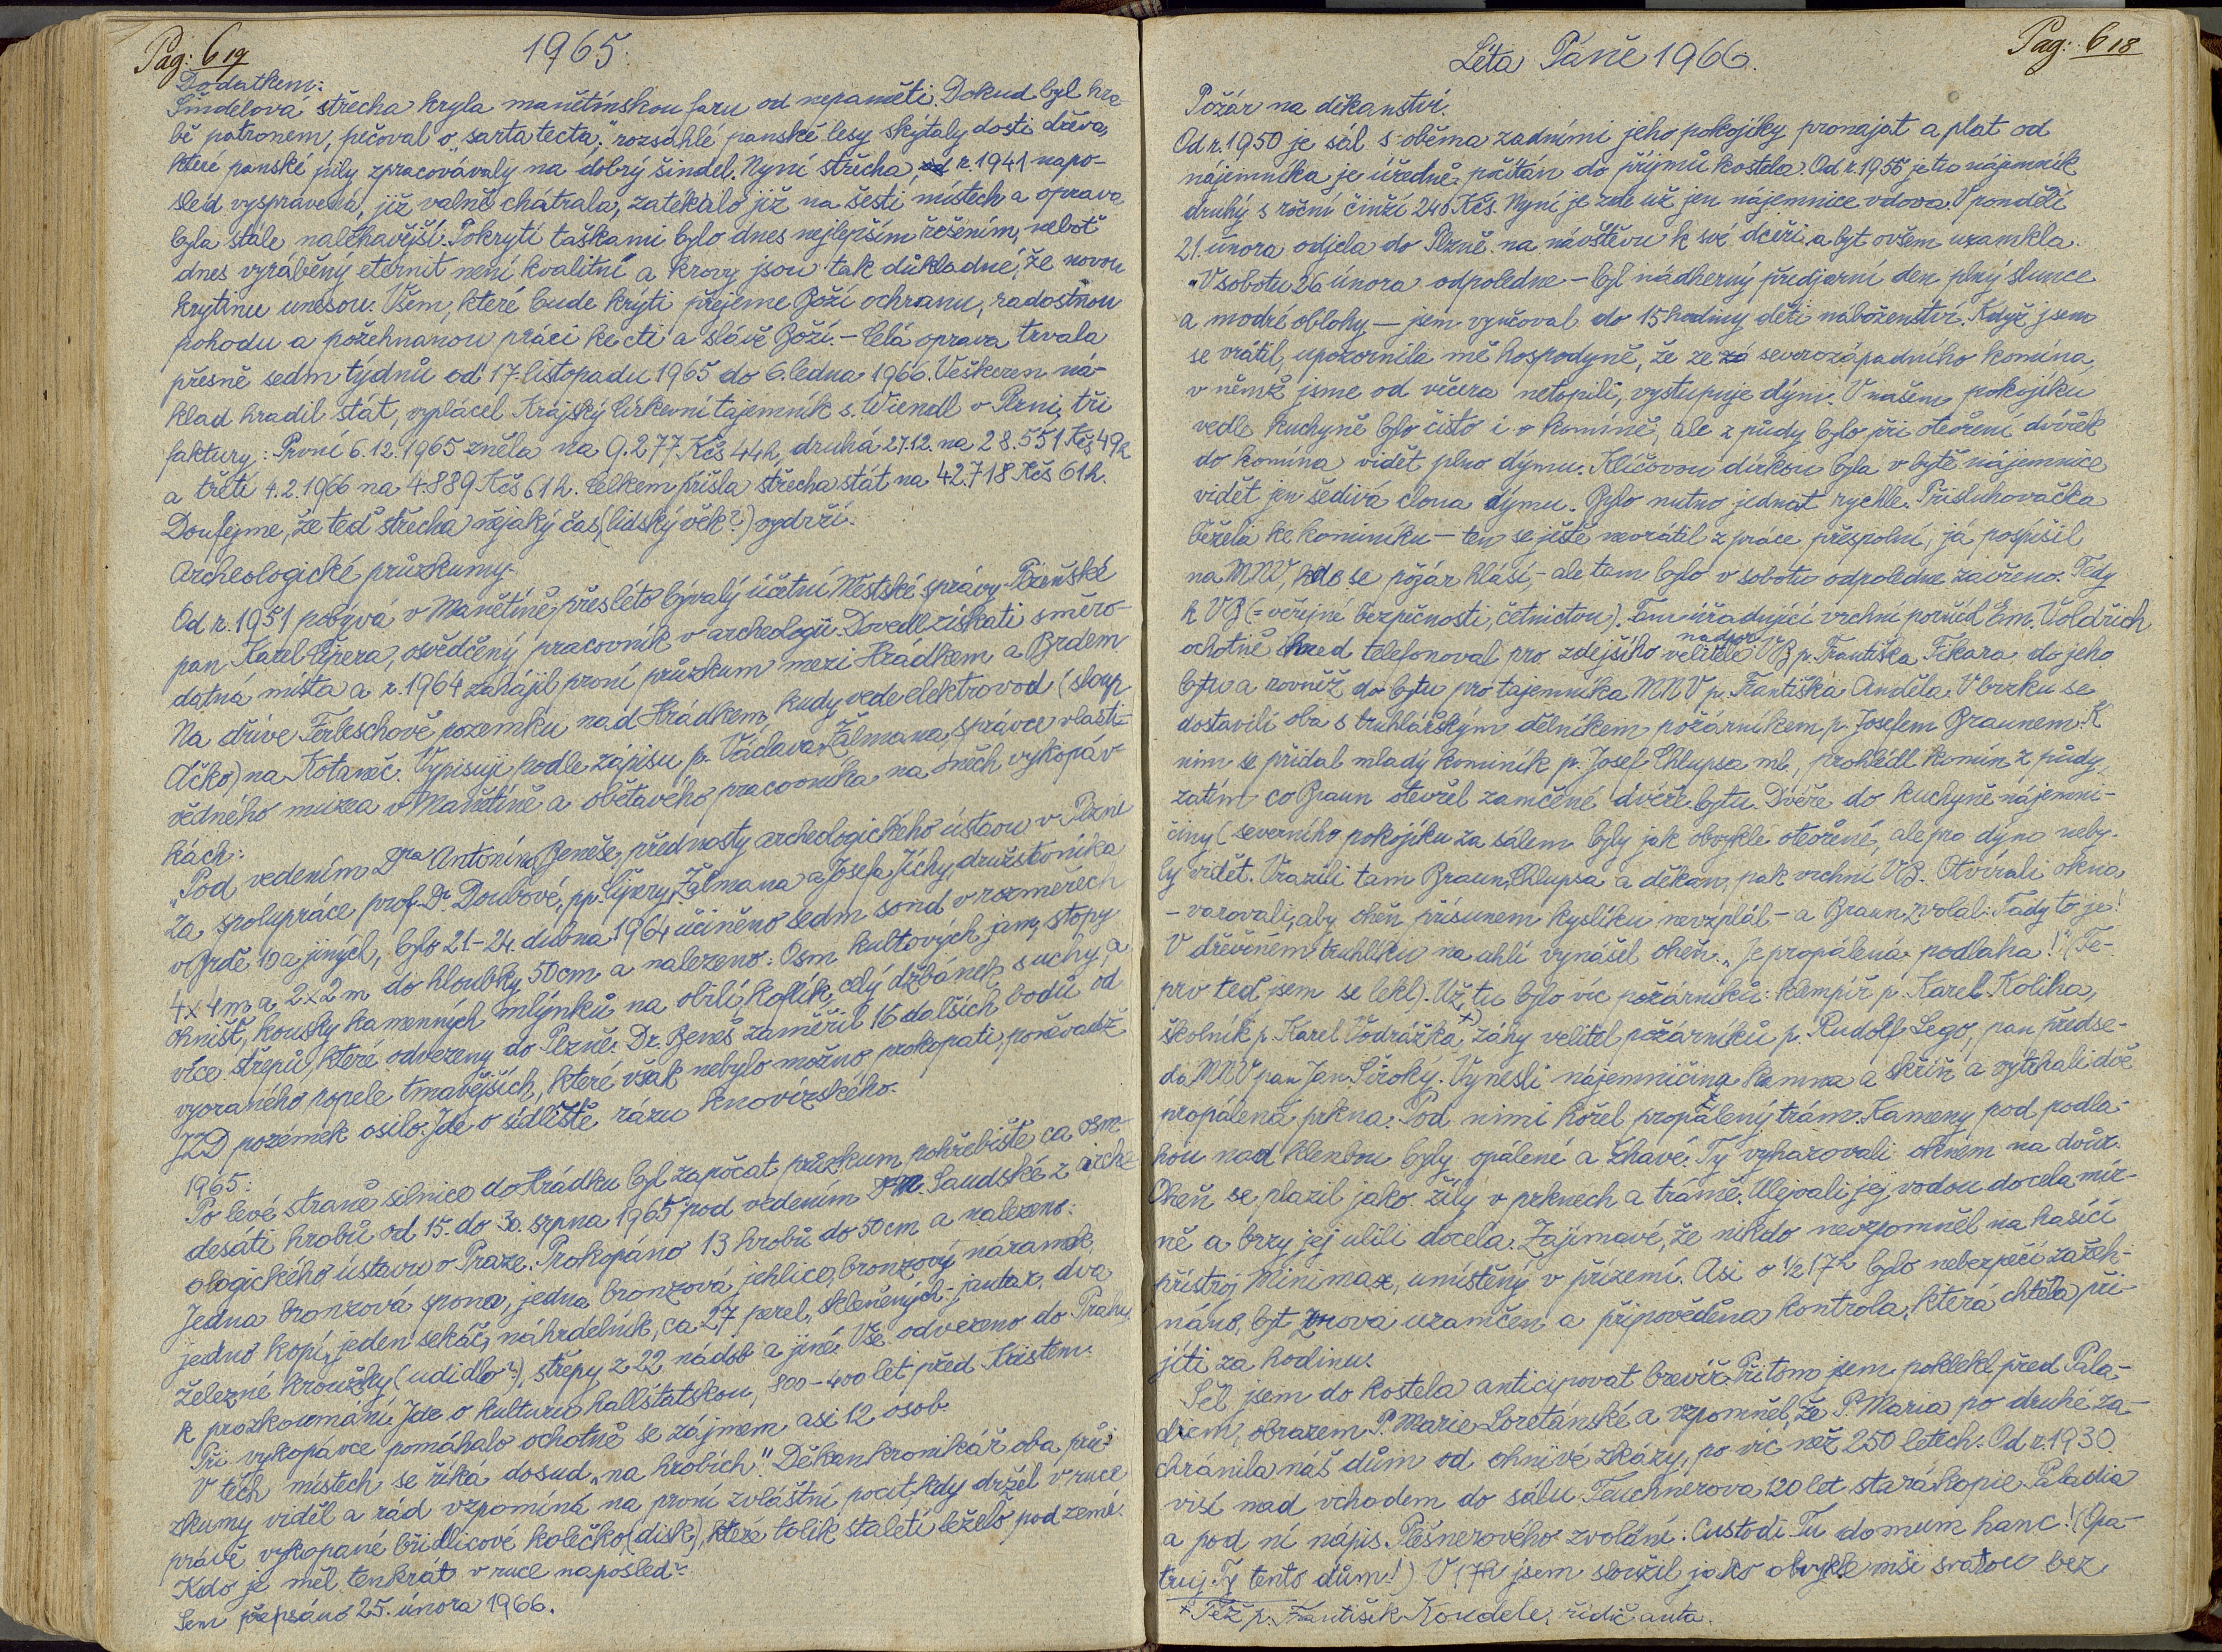 Pag: 619
1965.
Dodatkem:
Šindelová střecha kryla manětínskou faru od nepaměti. Dokud byl hra-
bě patronem, pečoval o „sarta tecta;" rozsáhlé panské lesy skýtaly dosti dřeva,
které panské pily zpracovávaly na dobrý šindel. Nyní střecha, r. 1941 napo-
sled vyspravená, již valně chátrala, zatékalo již na šesti místech a oprava
byla stále naléhavější. Pokrytí taškami bylo dnes nejlepším řešením, neboť
dnes vyráběný eternit není „kvalitní" a krovy jsou tak důkladné, že novou
krytinu unesou. Všem, které bude krýti přejeme Boží ochranu, radostnou
pohodu a požehnanou práci ke cti a slávě Boží. – Celá oprava trvala
přesně sedm týdnů od 17. listopadu 1965 do 6. ledna 1966. Veškeren ná-
klad hradil stát, vyplácel Krajský církevní tajemník s. Wiendl v Plzni, tři
faktury: První 6. 12. 1965 zněla na 9.277 Kčs 44h, druhá 27.12. na 28.551 Kčs 49h
a třetí 4. 2. 1966 na 4.889 Kčs 61 h. Celkem přišla střecha stát na 42.718 Kčs 61h.
Doufejme, že teď střecha nějaký čas (lidský věk?) vydrží.
Archeologické průzkumy.
Od r. 1951 pobývá v Manětíně přes léto bývalý účetní Městské správy Plzeňské
pan Karel Čipera, osvědčený pracovník v archeologii. Dovedl získati směro-
datná místa a r. 1964 zahájil první průzkum mezi Hrádkem a Brdem
Na dříve Ferleschově pozemku nad Hrádkem, kudy vede elektrovod (sloup
Ačko) na Kotaneč. Vypisuji podle zápisu p. Václava Žalmana, správce vlasti-
vědného muzea v Manětíně a obětavého pracovníka na oněch vykopáv-
kách:
„Pod vedením Dra Antonína Beneše, přednosty archeologického ústavu v Plzni
za spolupráce prof. Dr. Doubové, pp. Čipery, Žalmana a Josefa Jíchy, družstevníka
v Brdě 10 a jiných, bylo 21–24. dubna 1964 učiněno sedm sond v rozměrech
4×4m a 2×2m do hloubky 50cm a nalezeno: Osm kultových jam, stopy
ohnišť, kousky kamenných mlýnků na obilí, koflík, celý džbánek, suchý, a
více střepů, které odvezeny do Plzně. Dr. Beneš zaměřil 16 dalších bodů od
vyoraného popele tmavějších, které však nebylo možno prokopati, poněvadž
JZD pozemek osilo. Jde o sídliště rázu knovízského.
1965:
Po levé straně silnice do Hrádku byl započat průzkum pohřebiště ca osm-
desáti hrobů od 15. do 30. srpna 1965 pod vedením Saudské z arche-
ologického ústavu v Praze. Prokopáno 13 hrobů do 50cm a nalezeno:
Jedna bronzová spona, jedna bronzová jehlice, bronzový náramek,
jedno kopí, jeden sekáč, náhrdelník, ca 27 perel, skleněných, jantar, dva
železné kroužky (udidlo?), střepy z 22 nádob a jiné. Vše odvezeno do Prahy
k prozkoumání. Jde o kulturu hallštatskou, 800–400 let před Kristem.
Při vykopávce pomáhalo ochotně se zájmem asi 12 osob.
V těch místech se říká dosud „na hrobích". Děkan kronikář oba prů-
zkumy viděl a rád vzpomíná na první zvláštní pocit, kdy držel v ruce
právě vykopané břidlicové kolečko (disk), které tolik staletí leželo pod zemí.
Kdo je měl tenkrát v ruce naposled?
Sem přepsáno 25. února 1966.
Léta Páně 1966.
Pag: 618
Požár na děkanství.
Od r. 1950 je sál s oběma zadními jeho pokojíky pronajat a plat od
nájemníka je úředně počítán do příjmů kostela. Od r. 1956 je tu nájemník
druhý s roční činží 240 Kčs. Nyní je zde už jen nájemnice vdova. V pondělí
21. února odjela do Plzně na návštěvu k své dceři a byt ovšem uzamkla.
V sobotu 26 února odpoledne – byl nádherný předjarní den plný slunce
a modré oblohy – jsem vyučoval do 15 hodiny děti náboženství. Když jsem
se vrátil, upozornila mě hospodyně, že ze severozápadního komína,
v němž jsme od včera netopili, vystupuje dým. V našem pokojíku
vedle kuchyně bylo čisto i v komíně, ale z půdy bylo při otevření dvířek
do komína vidět plno dýmu. Klíčovou dírkou byla v bytě nájemnice
vidět jen šedivá clona dýmu. Bylo nutno jednat rychle. Přisluhovačka
běžela ke kominíku – ten se ještě nevrátil z práce přespolní, já pospíšil
na MNV, kde se požár hlásí, – ale tam bylo v sobotu odpoledne zavřeno. Tedy
k VB (= veřejné bezpečnosti, četnictvu). Tam úřadující vrchní poruč. Em. Voldřich
ochotně ihned telefonoval pro zdejšího velitele nadpor. VB p. Františka Fikara do jeho
bytu a rovněž do bytu pro tajemníka MNV p. Františka Anděla. V brzku se
dostavili oba s truhlářským dělníkem požárníkem p. Josefem Braunem. K
nim se přidal mladý kominík p. Josef Chlupsa ml., prohlédl komín z půdy,
zatím co Braun otevřel zamčené dvéře bytu. Dvéře do kuchyně nájemni-
činy (severního pokojíku za sálem byly jak obvykle otevřené, ale pro dým neby-
ly vidět. Vrazili tam Braun, Chlupsa a děkan, pak vrchní VB. Otvírali okna
– varovali, aby oheň přísunem kyslíku nevzplál – a Braun zvolal: Tady to je!
V dřevěném truhlíku na uhlí vynášel oheň. „Je propálená podlaha!" (Te-
prv teď jsem se lekl). Už tu bylo víc požárníků: klempíř p. Karel Koliha,
školník p. Karel Vodrážka +) záhy velitel požárníků p. Rudolf Lego, pan předse-
da MNV pan Jan Široký. Vynesli nájemničina kamna a skříň a vytrhali dvě
propálená prkna. Pod nimi hořel propálený trám. Kameny pod podla-
hou nad klenbou byly opálené a žhavé. Ty vyhazovali oknem na dvůr.
Oheň se plazil jako žíly v prknech a trámě. Ulejvali jej vodou docela mír-
ně a brzy jej ulili docela. Zajímavé, že nikdo nevzpomněl na hasící
přístroj Minimax, umístěný v přízemí. Asi o ½ 17h bylo nebezpečí zažeh-
náno, byt znova uzamčen a připověděna kontrola, která chtěla při-
jíti za hodinu.
Šel jsem do kostela anticipovat brevíř. Přitom jsem poklekl před Pala-
diem, obrazem P. Marie Loretánské a vzpomněl, že P. Maria po druhé za-
chránila náš dům od ohnivé zkázy, po víc než 250 letech. Od r. 1930
visí nad vchodem do sálu Teuchnerova 120 let stará kopie Paladia
a pod ní nápis Plešnerového zvolání: Custodi Tu domum hanc! (Opa-
truj Ty tento dům!) V 17h jsem sloužil jako obvykle mši svatou bez
+ Též p. František Koudele, řidič auta.